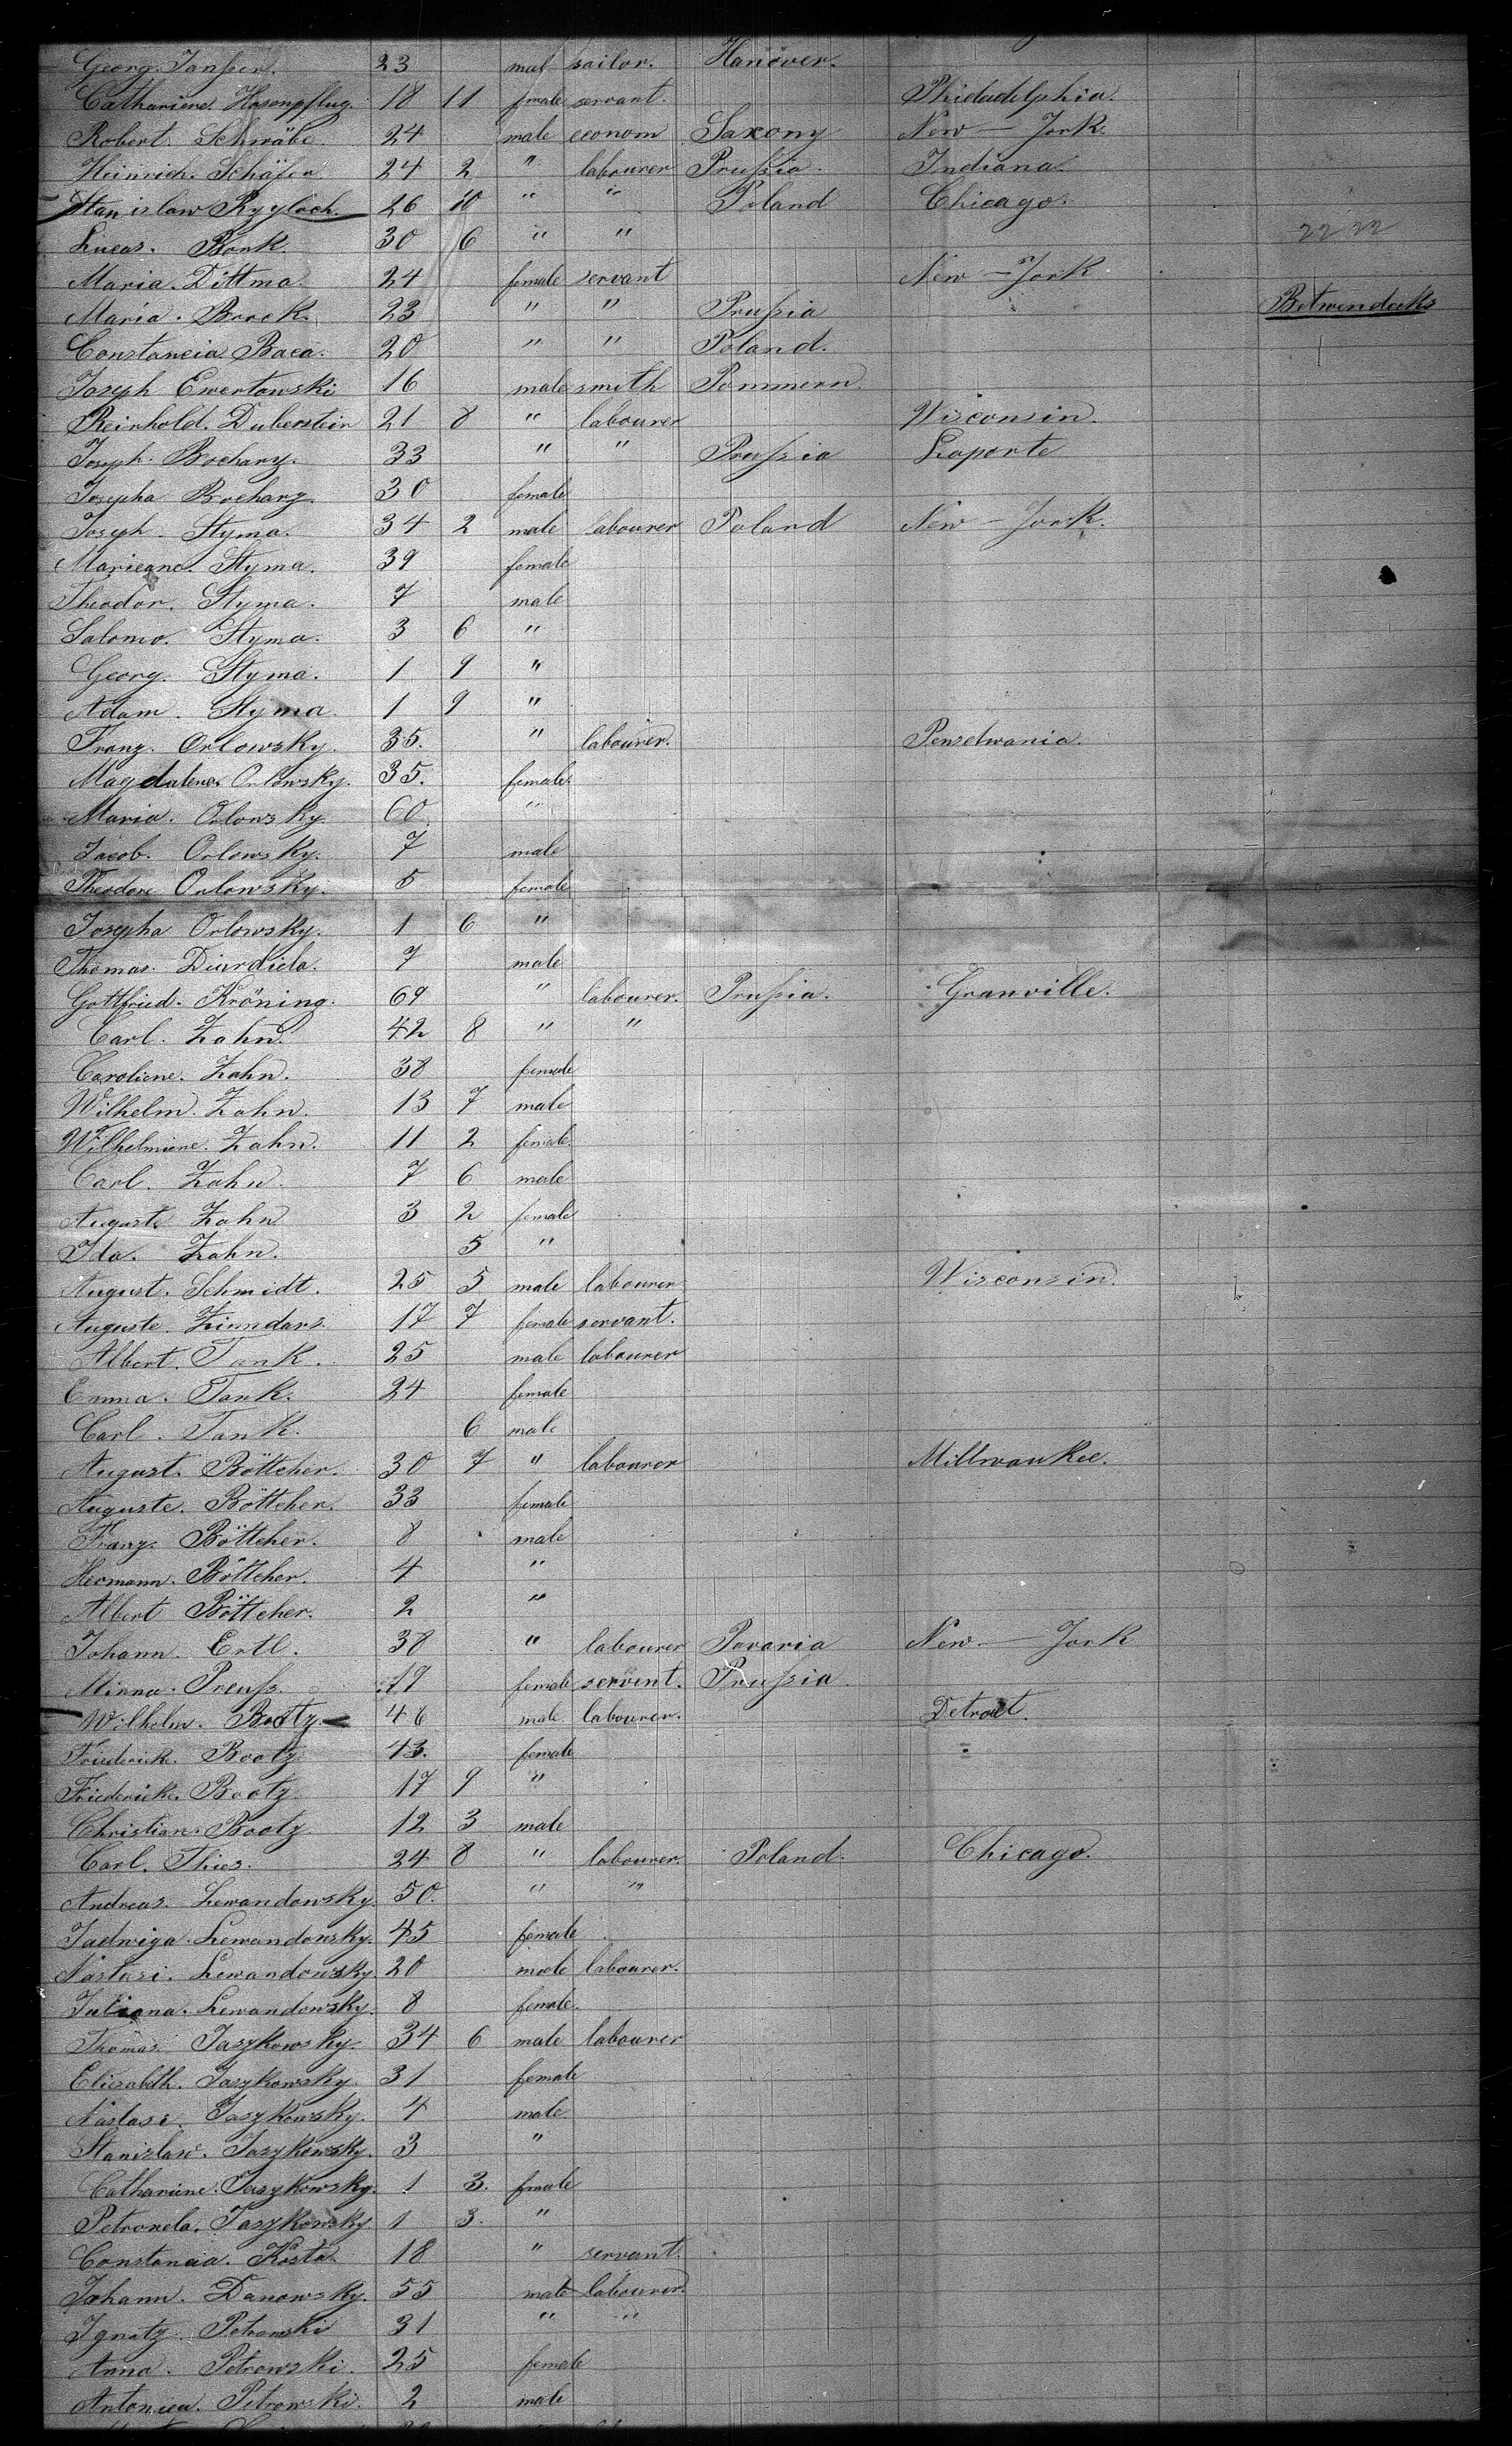 Georg. Janssen. 23 mal sailor. Hanover.
Cathariene Hasenpflug. 18 11 fmale servant. Phidadelphia.
Robert. Schwäbe. 24 male econom Saxony New - Jork.
Heinrich. Schäfer 24 2 " labourer Prußia. Indiana.
Stanislaw 26 10 " " Poland Chicago.
Lucas. Bonk. 30 6 " " 22 22
Maria. Dittma. 24 female servant New - Jork
Maria. Brock. 23 " " Prußia Betwendecks
Constancia Baca. 20 " " Poland.
Joseph Ewertowski 16 male smith Pommern
Reinhold. Duberstein 21 8 " labourer Wisconsin.
Joseph. Bochary. 33 " " Prußia Laporte
Josepha Bochary. 30 female
Joseph. Styma. 34 2 male labourer Poland New - Jork.
Marieane. Styma. 39 female
Theodor. Styma. 7 male
Salomo. Styma. 3 6 "
Georg. Styma. 1 9 "
Adam. Styma. 1 9 "
Franz. Orlowsky. 35. " labourer. Penselwania.
Magdalena Orlowsky. 35. female.
Maria. Orlowsky 60. "
Jacob. Orlowsky. 7 male
Theodore Orlowsky. 5 female
Josepha Orlowsky. 1 6 "
Thomas. Diurdiela. 7 male
Gottfried. Kröning. 69 " labourer. Prußia. Granville.
Carl. Zahn. 42 8 " "
Caroliene. Zahn. 38 female
Wilhelm. Zahn. 13 7 male
Wilhelmiene. Zahn. 11 2 female
Carl. Zahn. 7 6 male
Auguste Zahn 3 2 female
Ida. Zahn. 5 "
August. Schmidt. 25 5 male labourer Wisconsin.
Auguste. Zinndars. 17 7 female servant.
Albert. Tank. 25 male labourer
Emma. Tank. 24 female
Carl. Tank. 6 male
August. Böttcher. 30 7 " labourer Millwaukee.
Auguste. Böttcher. 33 female
Franz. Böttcher. 8 male
Hermann. Böttcher. 4 "
Albert Böttcher. 2 "
Johann. Ertl. 38 " labourer Bavaria New. - Jork
Minna. Preuß. 19 female servent. Prußia
Wilhelm. Bootz 46 male labourer. Detroet.
Friederick. Bootz. 43. female
Friedericke. Bootz. 17 9 "
Christian. Bootz 12 3 male
Carl. Thies. 24 8 " labourer. Poland. Chicago.
Andreas. Lewandowsky. 50. " "
Jadwiga. Lewandowsky. 45 female
Nastasi. Lewandowsky. 20 male labourer.
Juliana. Lewandowsky. 8 female.
Thomas. Jaszkowsky. 34 6 male labourer
Elisabeth. Jaszkowsky. 31 female
Nastasi. Jaszkowsky. 4 male.
Stanislaw. Jaszkowsky. 3 "
Cathariene. Jaszkowsky. 1 3. fmale
Petronela. Jaszkowsky 1 3. "
Constancia. Kosta. 18 " servant.
Johann. Danowsky. 55 male labourer.
Ignatz. Petrowski 31 " "
Anna. Petrowski. 25 female
Antoniea. Petrowski. 2 male